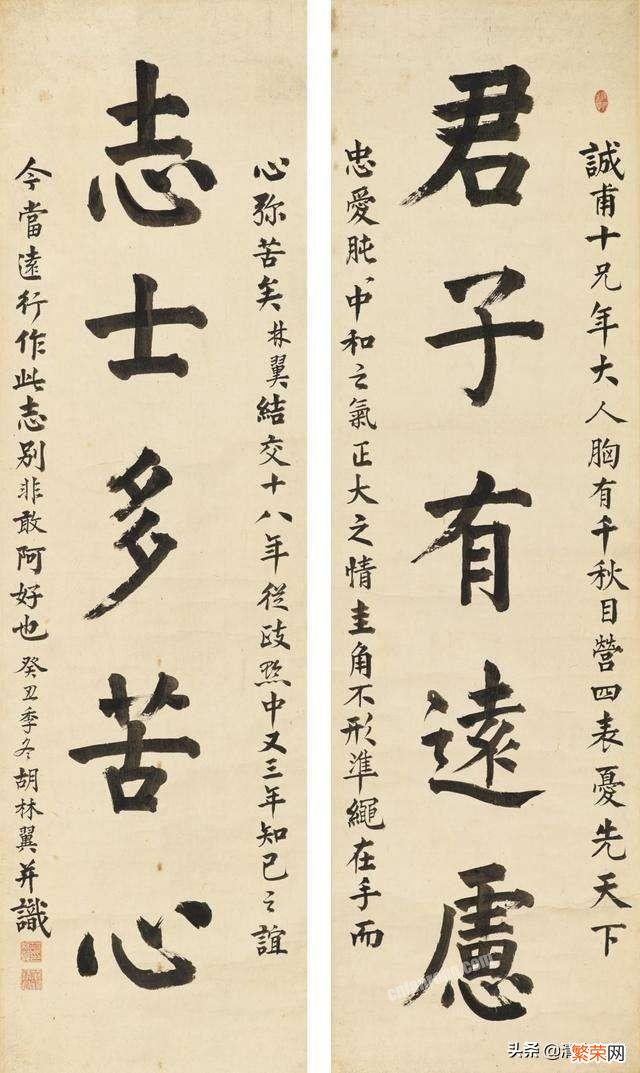 誠甫十兄年大人胸有千秋目營四表憂先天下
君子有遠慮
忠愛肫〻中和之氣正大之情圭角不形準繩在手而
心弥苦矣林翼結交十八年從政黔中又三年知己之誼
志士多苦心
今當遠行作此志別非敢阿好也癸丑季冬胡林翼并識
头条
繁荣网